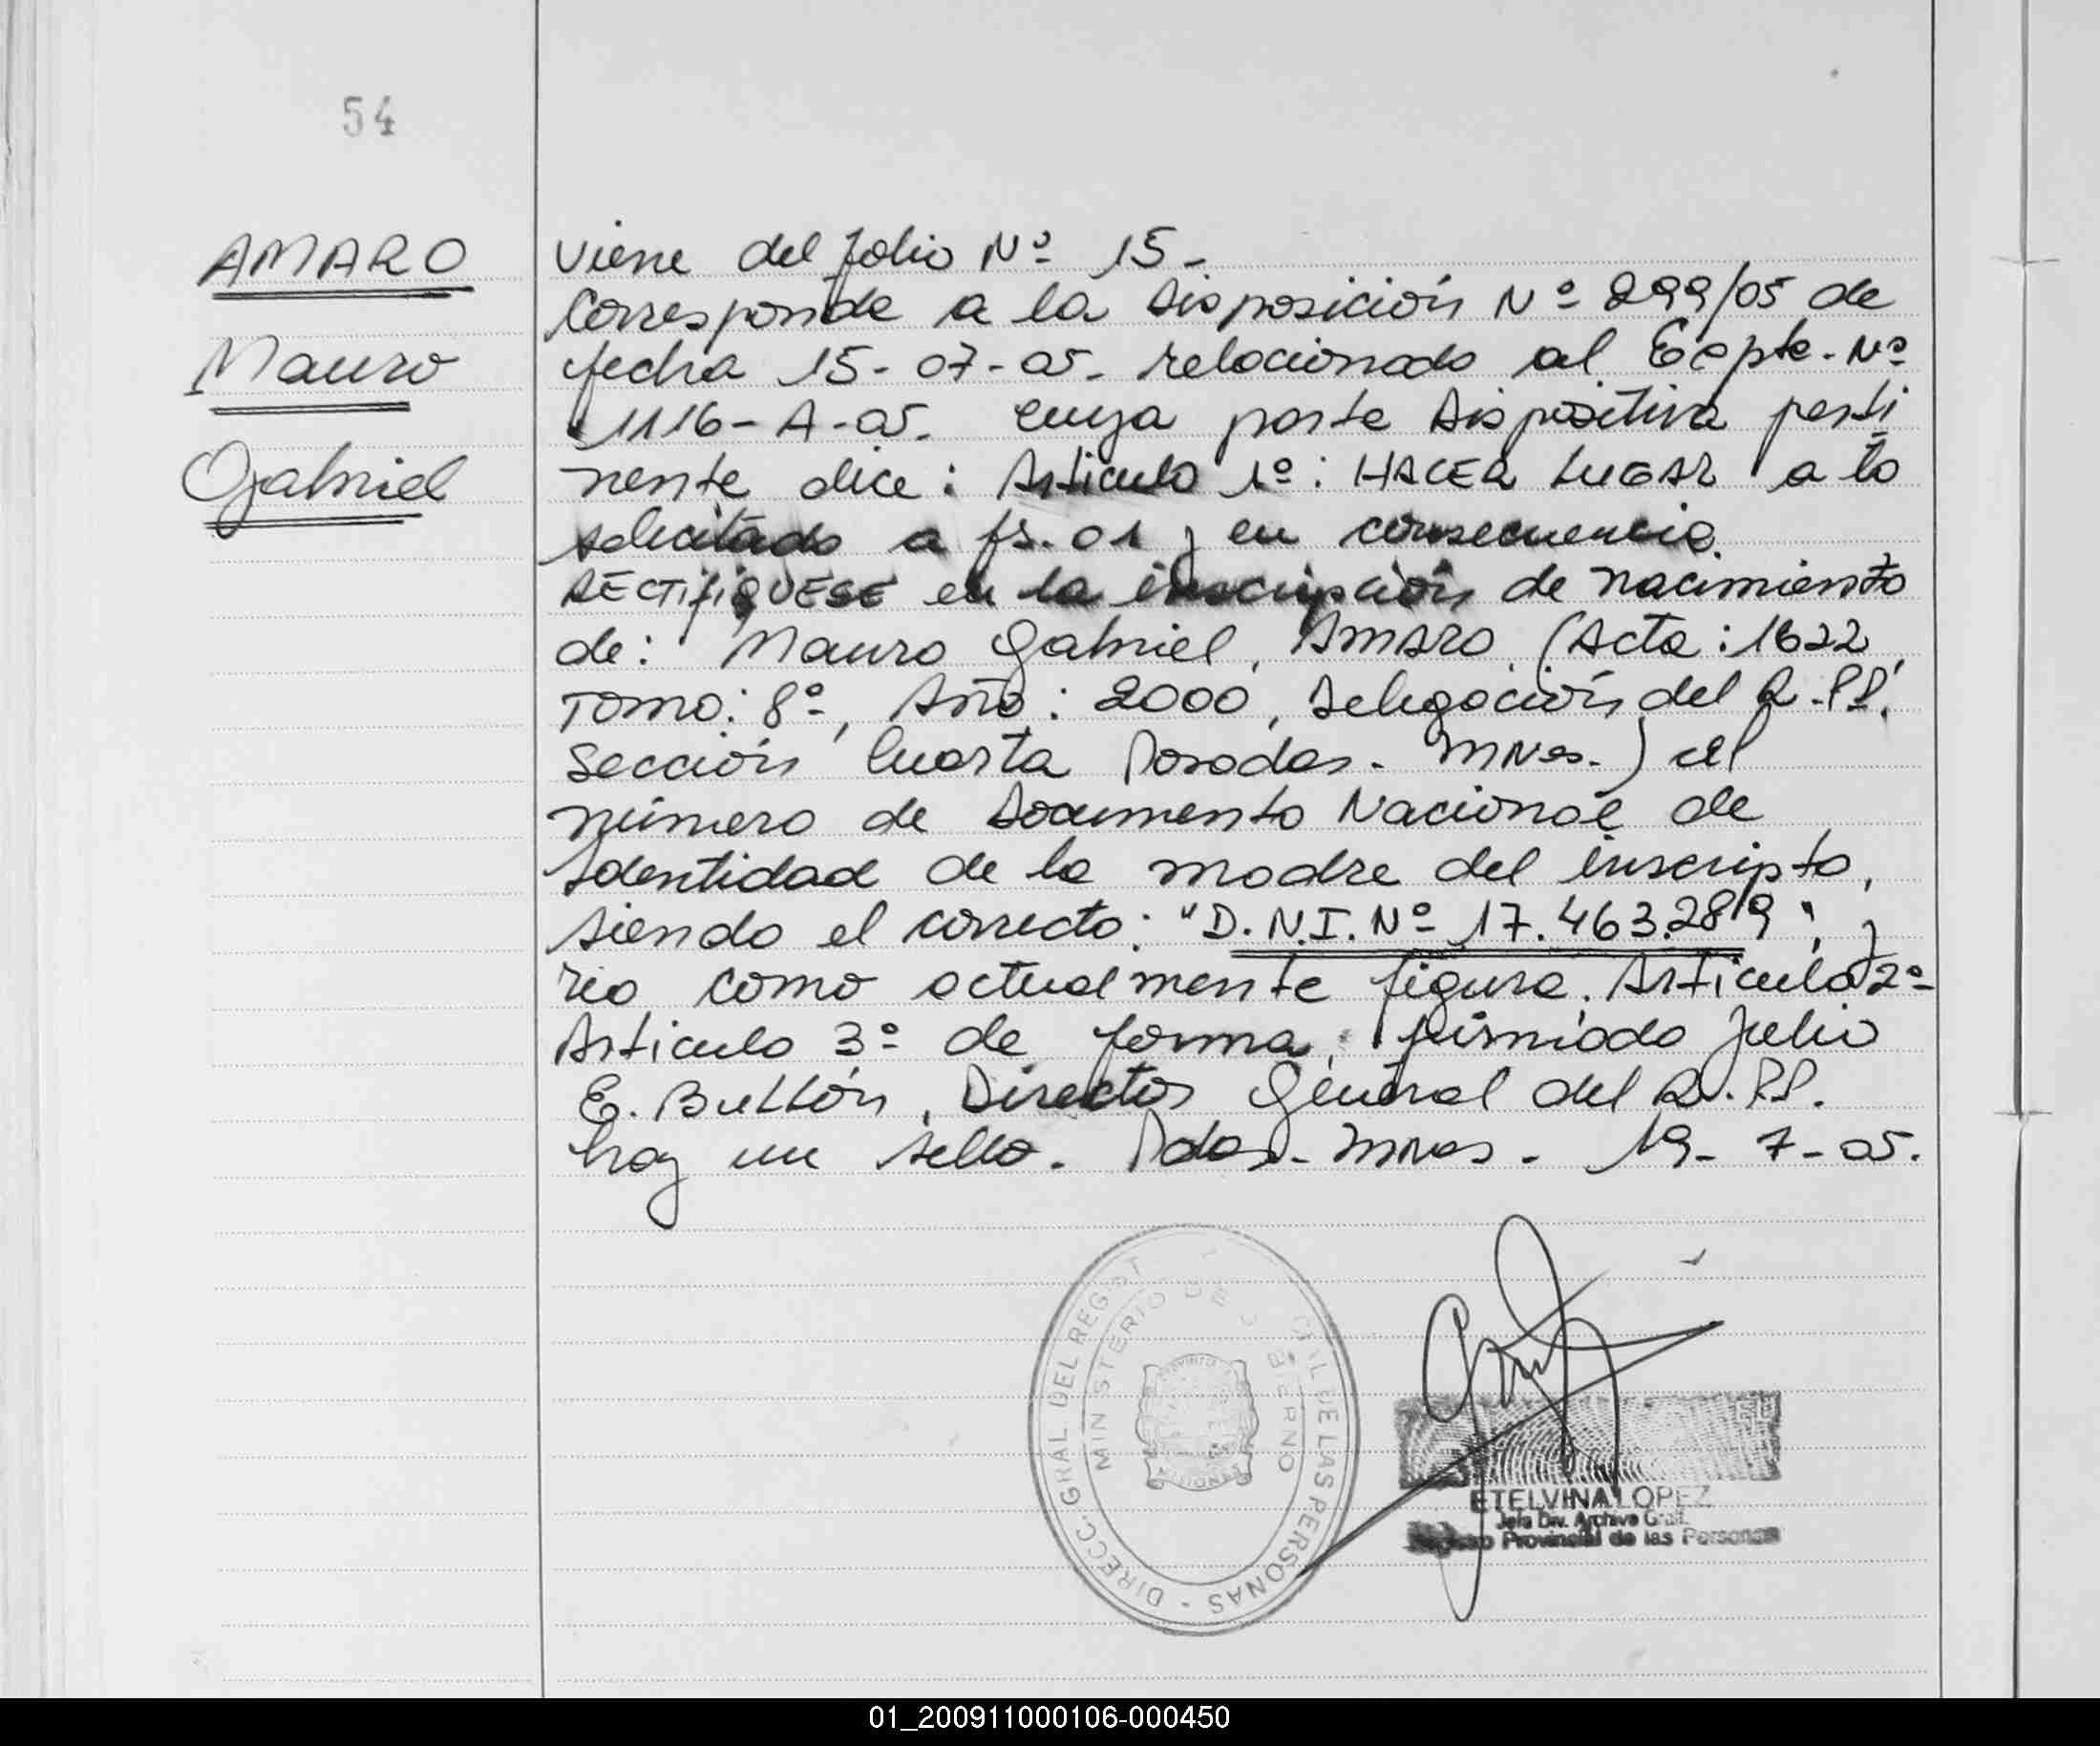 54
AMARO
Mauro
Gabriel
Viene del folio Nº 15-
Corresponde a la Disposición Nº 299/05 de
fecha 15-07-05- relacionado al Expte- Nº
1116-A-05- cuya parte Dispositiva perti
nente dice: Articulo 1º: HACER LUGAR a lo
solicitado a fs. 01 y en consecuencia.
RECTIFIQUESE en la inscripción de nacimiento
de: Mauro Gabriel, AMARO (Acta: 1622,
Tomo: 8º, Año: 2000, Delegación del R.PP.
Sección Cuarta Posadas- MNes.) el
número de Documento Nacional de
Identidad de la madre del inscripto,
siendo el correcto: "D.N.I. Nº 17.463.289", y
no como actualmente figura. Articulo 2º
Articulo 3º de forma, firmado Julio
E. Bullón, Director General del R.PP.
hay un sello. Pdas- MNes- 19-7-05.
DIRECC. GRAL. DEL REG DE LAS PERSONAS -
MINISTERIO DE GOBIERNO
ETELVINA LOPEZ
Jefa Div. Archivo Gral.
Registro Provincial de las Personas
01_200911000106-000450